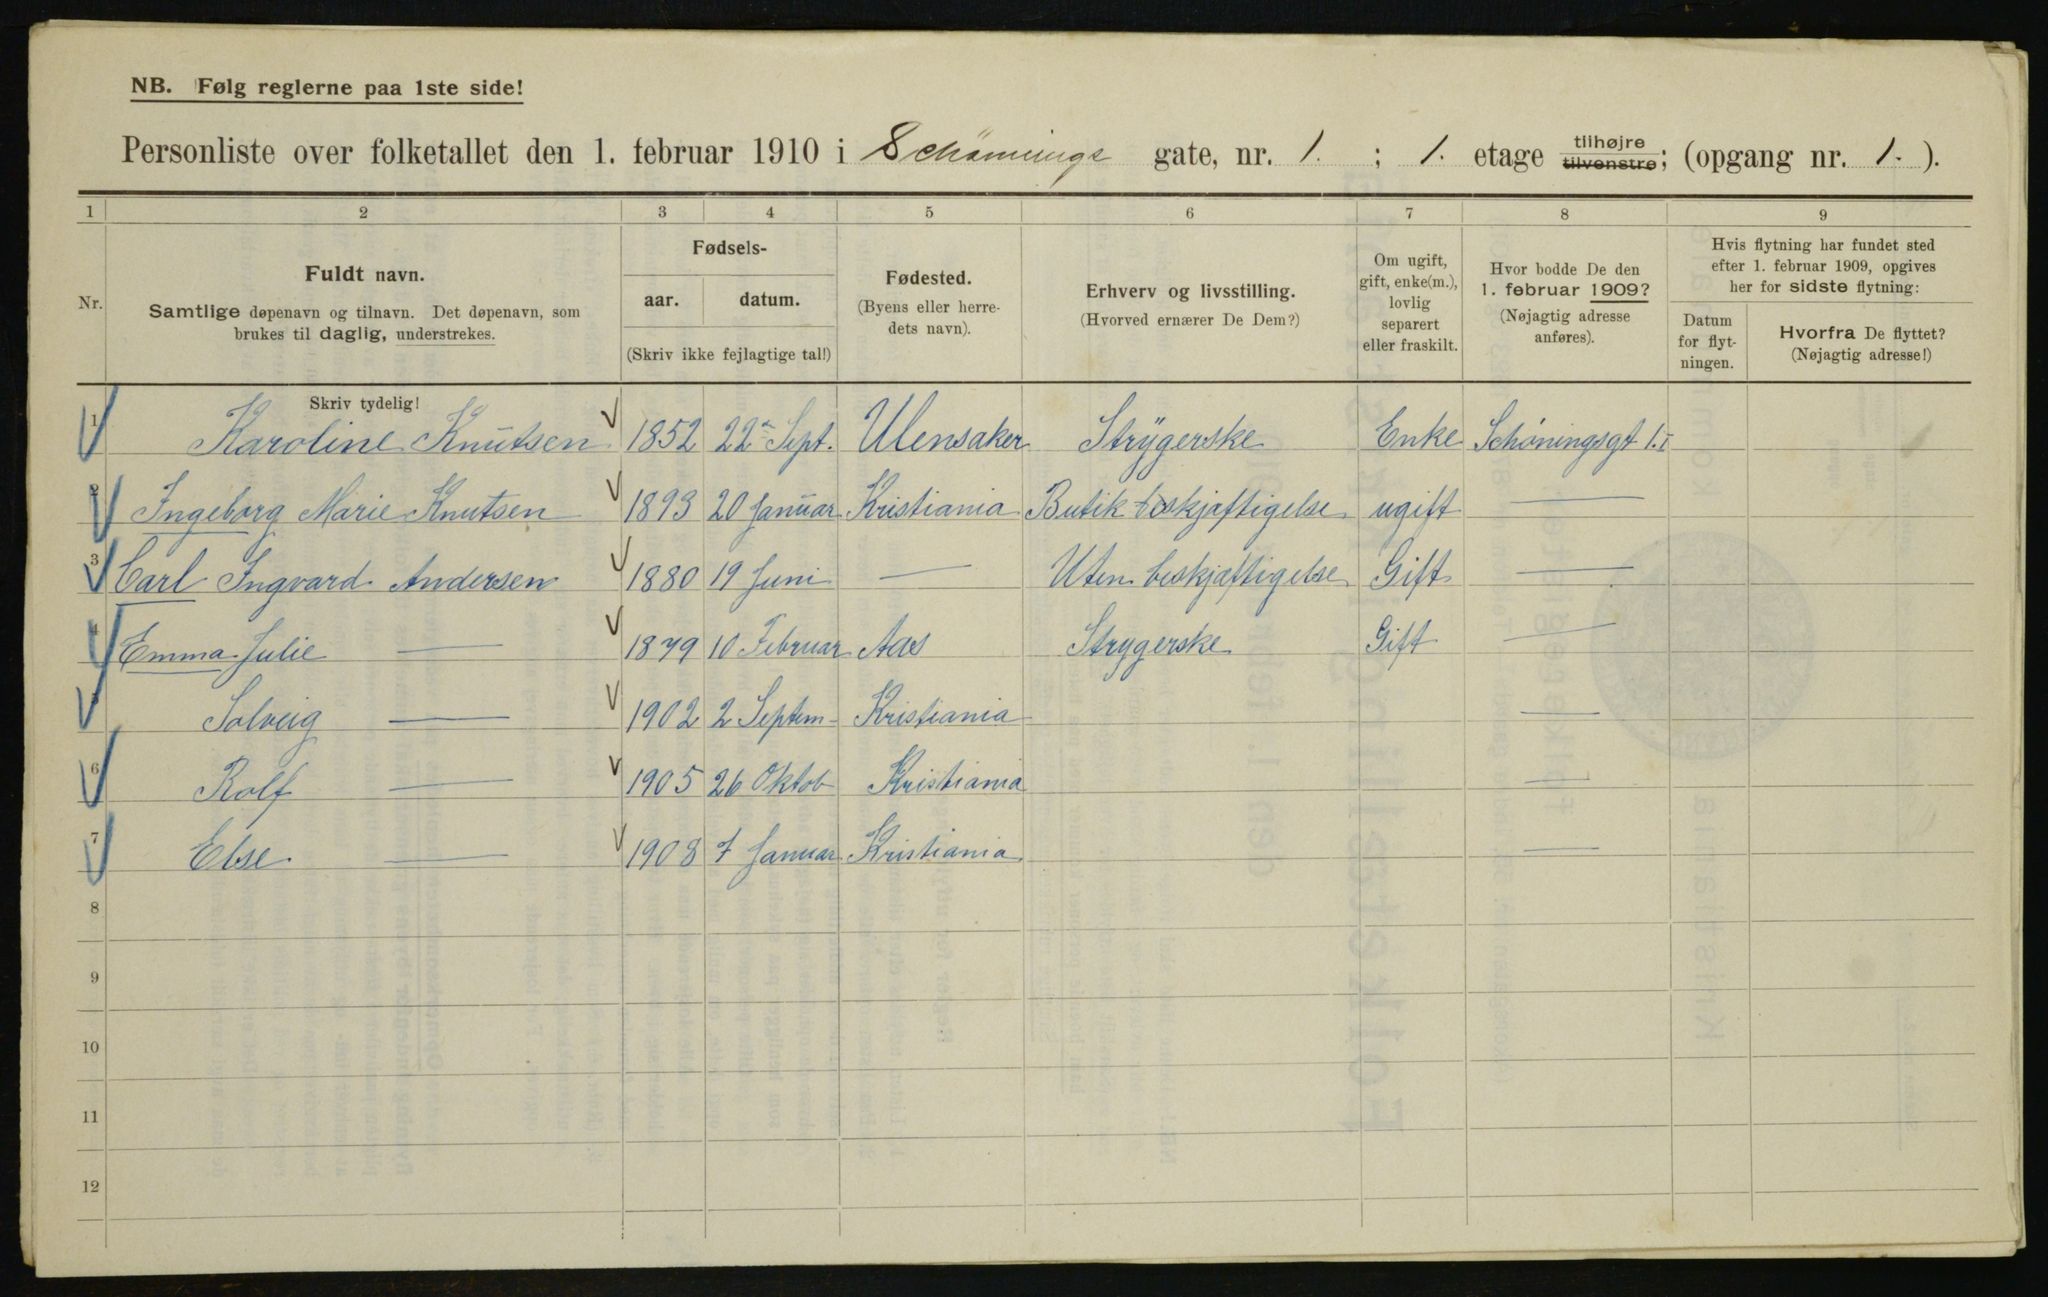 NB. Følg reglerne paa 1ste side!
Personliste over folketallet den 1. februar 1910 i Schønnings gate, nr. 1. ; 1. etage tilhøjre tilvenstre; (opgang nr. 1. ).
1 2 3 4 5 6 7 8 9
Nr.
Fuldt navn.
Samtlige døpenavn og tilnavn. Det døpenavn, som
brukes til daglig, understrekes.
Fødsels-
aar. datum.
(Skriv ikke fejlagtige tal!)
Fødested.
(Byens eller herre-
dets navn).
Erhverv og livsstilling.
(Hvorved ernærer De Dem?)
Om ugift,
gift, enke(m.),
lovlig
separert
eller fraskilt.
Hvor bodde De den
1. februar 1909?
(Nøjagtig adresse
anføres).
Hvis flytning har fundet sted
efter 1. februar 1909, opgives
her for sidste flytning:
Datum
for flyt-
ningen.
Hvorfra De flyttet?
(Nøjagtig adresse!)
Skriv tydelig!
1 Karoline Knutsen 1852 22 Sept. Ulensaker Strygerske Enke Schøningsgt 1.I
2 Ingeborg Marie Knutsen 1893 20 Januar Kristiania Butik beskjæftigelse ugift —
3 Carl Ingvard Andersen 1880 19 Juni — Uten beskjæftigelse Gift —
4 Emma Julie — 1879 10 Februar Aas Strygerske Gift —
5 Solveig — 1902 2 Septem- Kristiania —
6 Rolf — 1905 26 Oktob Kristiania —
7 Else — 1908 7 Januar Kristiania —
8
9
10
11
12